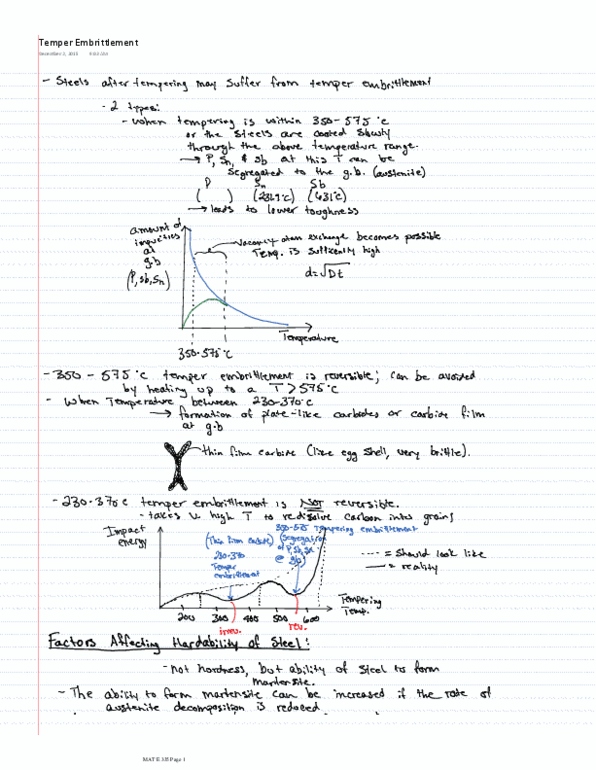 Temper Embrittlement
- Steels after tempering may suffer from temper embrittlement
- 2 types:
- when tempering is within 350-575°C
or the steels are cooled slowly
through the above temperature range.
→ P, Sn, & Sb at this T can be
segregated to the g.b. (austenite)
P Sn Sb
( ) (231.9°C) (631°C)
→ leads to lower toughness
amount of
impurities
at
g.b
(P, Sb, Sn)
vacancy-atom exchange becomes possible
Temp. is sufficiently high
d=√Dt
Temperature
350-575°C
- 350 - 575°C temper embrittlement is reversible; can be avoided
by heating up to a T > 575°C
- When Temperature between 230-370°C
→ formation of plate-like carbides or carbide film
at g.b
thin film carbide (like egg shell, very brittle).
- 230-370°C temper embrittlement is NOT reversible.
- takes v. high T to redissolve carbon into grains
Impact
energy
350-575 Tempering embrittlement
(Thin film carbide)
(Segregation
of P, Sb, Sn
@ gb)
230-370
Temper
embrittlement
--- = should look like
— = reality
Tempering
Temp.
200 300 400 500 600
irrev. rev.
Factors Affecting Hardability of Steel:
- not hardness, but ability of steel to form
martensite.
- The ability to form martensite can be increased if the rate of
austenite decomposition is reduced.
MAT E 335 Page 1